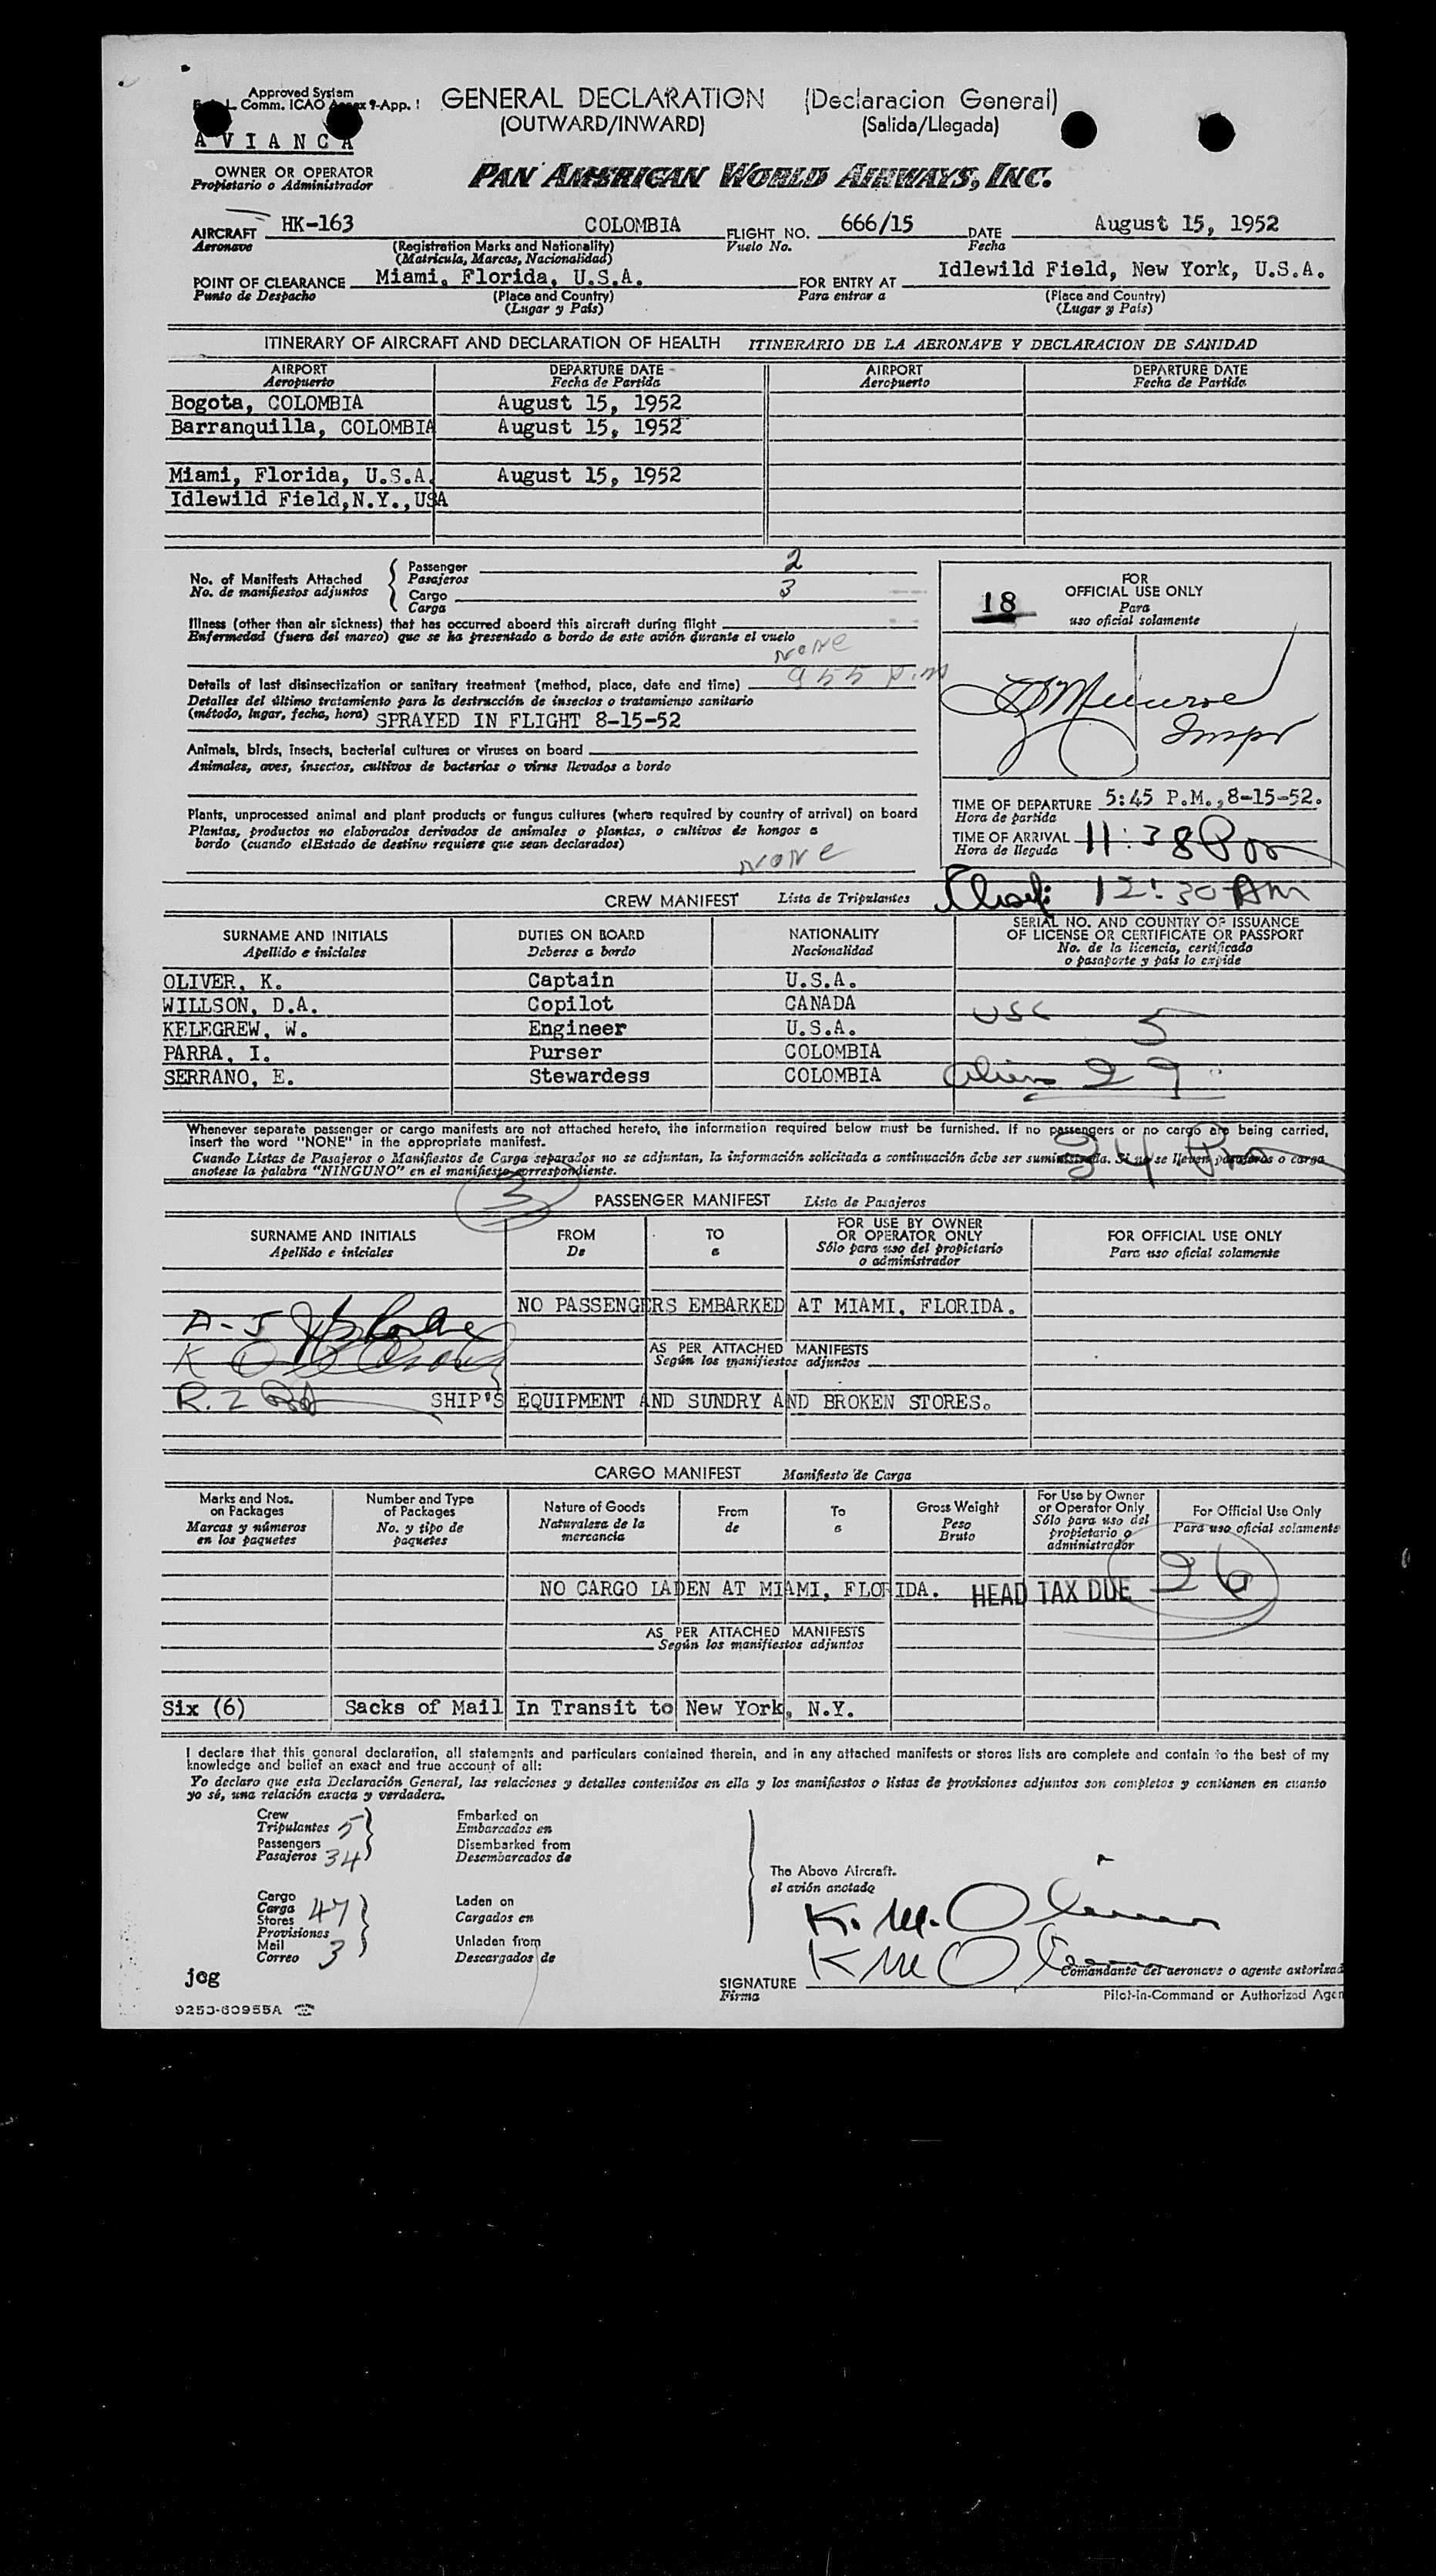 Approved System
Comm. ICAO Annex 9-App. 1
GENERAL DECLARATION (Declaracion General)
(OUTWARD/INWARD) (Salida/Llegada)
AVIANCA
OWNER OR OPERATOR
Propietario o Administrador
PAN AMERICAN WORLD AIRWAYS, INC.
AIRCRAFT HK-163 COLOMBIA FLIGHT NO. 666/15 DATE August 15, 1952
Aeronave (Registration Marks and Nationality) Vuelo No. Fecha
(Matricula, Marcas, Nacionalidad)
POINT OF CLEARANCE Miami, Florida, U.S.A. FOR ENTRY AT Idlewild Field, New York, U.S.A.
Punto de Despacho (Place and Country) Para entrar a (Place and Country)
(Lugar y País) (Lugar y País)
ITINERARY OF AIRCRAFT AND DECLARATION OF HEALTH ITINERARIO DE LA AERONAVE Y DECLARACION DE SANIDAD
AIRPORT DEPARTURE DATE AIRPORT DEPARTURE DATE
Aeropuerto Fecha de Partida Aeropuerto Fecha de Partida
Bogota, COLOMBIA August 15, 1952
Barranquilla, COLOMBIA August 15, 1952
Miami, Florida, U.S.A. August 15, 1952
Idlewild Field,N.Y.,USA
No. of Manifests Attached
No. de manifiestos adjuntos
Passenger 2
Pasajeros
Cargo 3
Carga
FOR
OFFICIAL USE ONLY
Para
uso oficial solamente
18
Illness (other than air sickness) that has occurred aboard this aircraft during flight
Enfermedad (fuera del mareo) que se ha presentado a bordo de este avión durante el vuelo
none
Details of last disinsectization or sanitary treatment (method, place, date and time) 955 P.m
Detalles del último tratamiento para la destrucción de insectos o tratamiento sanitario
(método, lugar, fecha, hora) SPRAYED IN FLIGHT 8-15-52
Inspr
Animals, birds, insects, bacterial cultures or viruses on board
Animales, aves, insectos, cultivos de bacterias o virus llevados a bordo
Plants, unprocessed animal and plant products or fungus cultures (where required by country of arrival) on board
Plantas, productos no elaborados derivados de animales o plantas, o cultivos de hongos a
bordo (cuando elEstado de destino requiere que sean declarados)
none
TIME OF DEPARTURE 5:45 P.M.,8-15-52.
Hora de partida
TIME OF ARRIVAL 11:38 Pm
Hora de llegada
12:30 AM
CREW MANIFEST Lista de Tripulantes
SURNAME AND INITIALS DUTIES ON BOARD NATIONALITY SERIAL NO. AND COUNTRY OF ISSUANCE
OF LICENSE OR CERTIFICATE OR PASSPORT
Apellido e iniciales Deberes a bordo Nacionalidad No. de la licencia, certificado
o pasaporte y país lo expide
OLIVER, K. Captain U.S.A.
WILLSON, D.A. Copilot CANADA
KELEGREW, W. Engineer U.S.A.
PARRA, I. Purser COLOMBIA
SERRANO, E. Stewardess COLOMBIA
USC 5
Aliens 29
Whenever separate passenger or cargo manifests are not attached hereto, the information required below must be furnished. If no passengers or no cargo are being carried,
insert the word "NONE" in the appropriate manifest.
Cuando Listas de Pasajeros o Manifiestos de Carga separados no se adjuntan, la información solicitada a continuación debe ser suministrada. Si no se lleven pasajeros o carga
anotese la palabra "NINGUNO" en el manifiesto correspondiente.
34
3
PASSENGER MANIFEST Lista de Pasajeros
SURNAME AND INITIALS FROM TO FOR USE BY OWNER
OR OPERATOR ONLY FOR OFFICIAL USE ONLY
Apellido e iniciales De a Sólo para uso del propietario
o administrador Para uso oficial solamente
NO PASSENGERS EMBARKED AT MIAMI, FLORIDA.
AS PER ATTACHED MANIFESTS
Según los manifiestos adjuntos
SHIP'S EQUIPMENT AND SUNDRY AND BROKEN STORES.
CARGO MANIFEST Manifiesto de Carga
Marks and Nos.
on Packages
Marcas y números
en los paquetes
Number and Type
of Packages
No. y tipo de
paquetes
Nature of Goods
Naturaleza de la
mercancia
From
de
To
a
Gross Weight
Peso
Bruto
For Use by Owner
or Operator Only
Sólo para uso del
propietario o
administrador
For Official Use Only
Para uso oficial solamente
NO CARGO LADEN AT MIAMI, FLORIDA. HEAD TAX DUE 26
AS PER ATTACHED MANIFESTS
Según los manifiestos adjuntos
Six (6) Sacks of Mail In Transit to New York, N.Y.
I declare that this general declaration, all statements and particulars contained therein, and in any attached manifests or stores lists are complete and contain to the best of my
knowledge and belief an exact and true account of all:
Yo declaro que esta Declaración General, las relaciones y detalles contenidos en ella y los manifiestos o listas de provisiones adjuntos son completos y contienen en cuanto
yo sé, una relación exacta y verdadera.
Crew Embarked on
Tripulantes 5 Embarcados en
Passengers Disembarked from
Pasajeros 34 Desembarcados de
The Above Aircraft.
el avión anotado
Cargo
Carga 47 Laden on
Stores Cargados en
Provisiones
Mail Unladen from
Correo 3 Descargados de
K. M. Oliver
K M Oliver
Comandante del aeronave o agente autorizad
jeg
SIGNATURE
Firma
Pilot-in-Command or Authorized Agen
9253-60955A